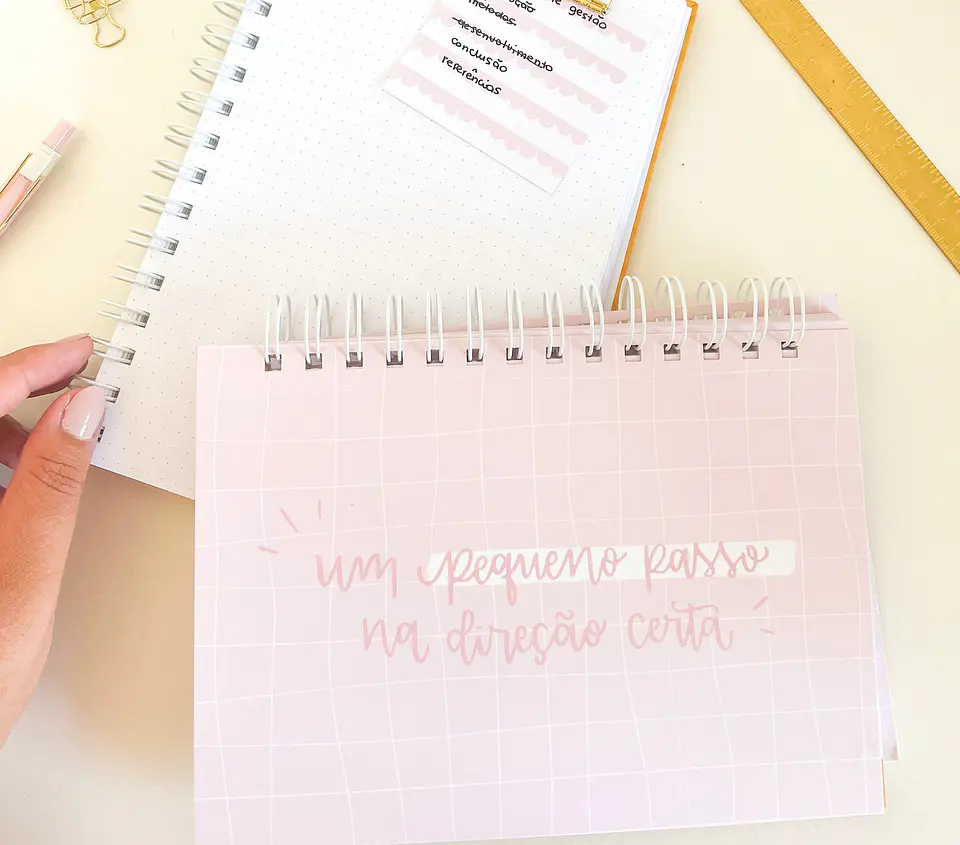 e gestão
métodos.
desenvolvimento
conclusão
referências
um pequeno passo
na direção certa